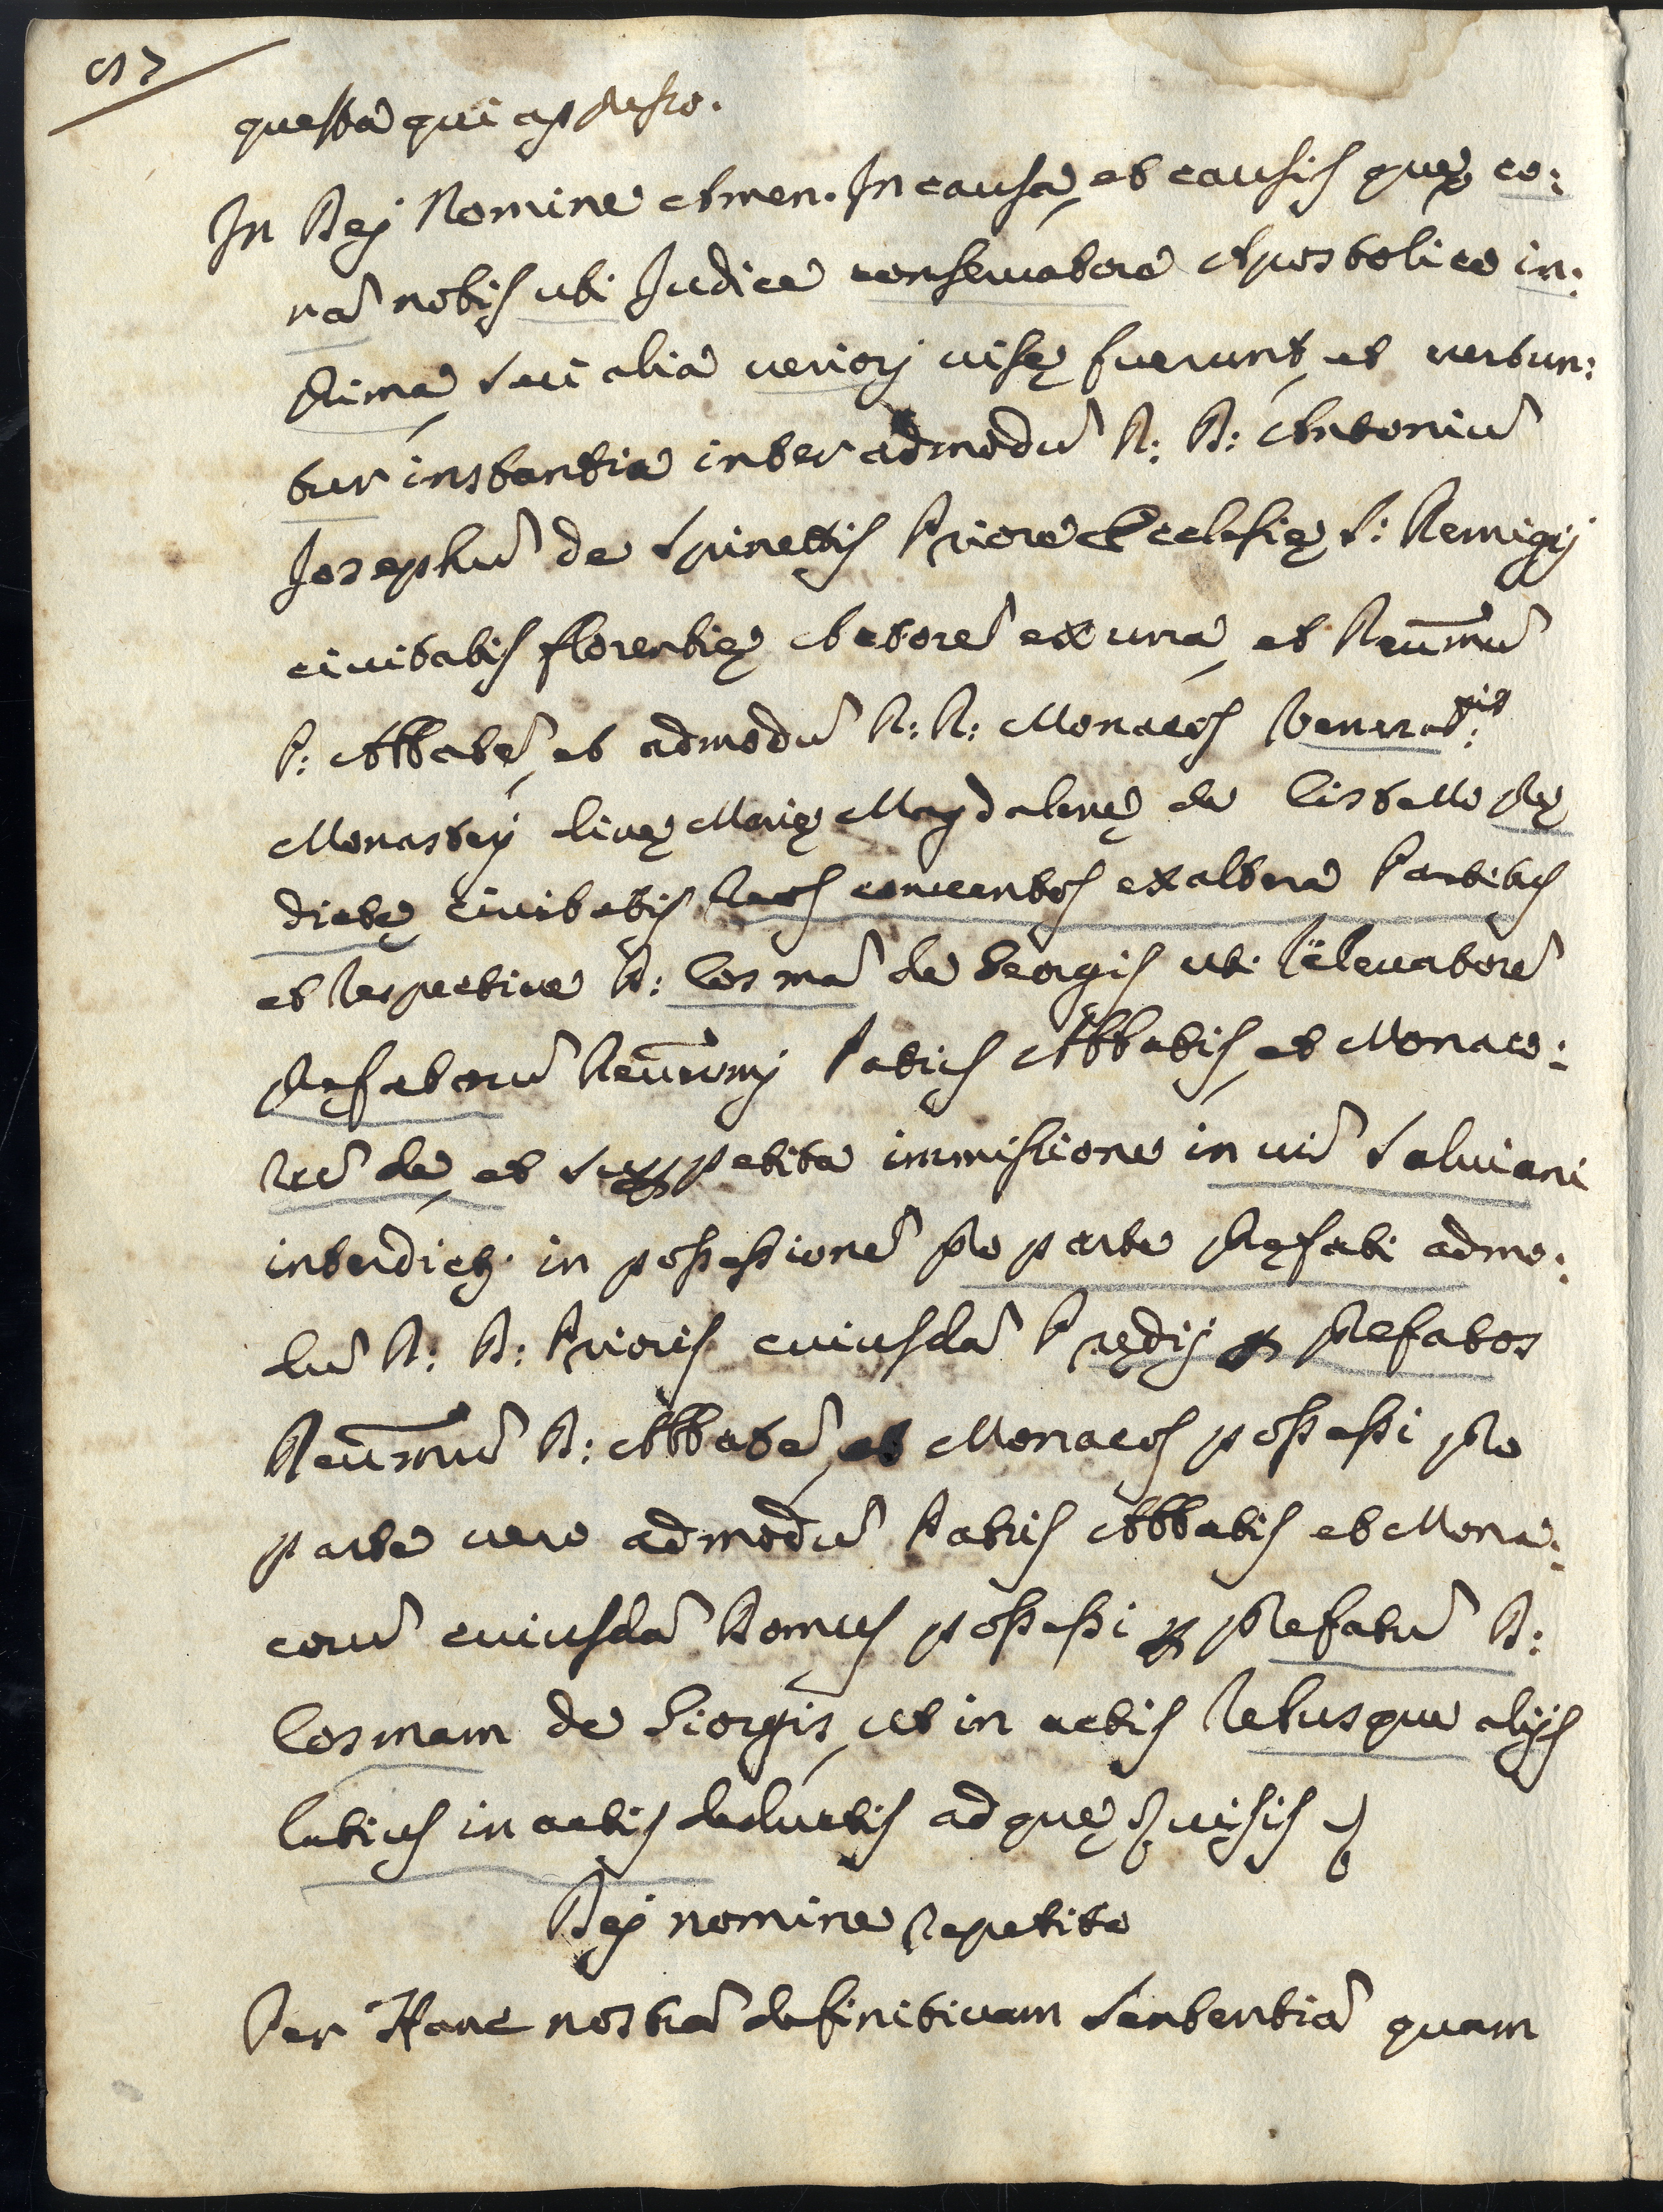 questa qui app.o
In Dej Nomine Amen. In causa, et causis quę co:
rā nobis uti Judice conseruatore Apostolico in:
Prima, seu alia veriorj uisę fuerunt, et vertun:
tur instantia inter admodū R: D: Antoniū
Josephū de Spinettis Priorē Ecclesię S: Remigij
ciuitatis florentię Actorē ex una, et Reū̄mū
P: Abbatē, et admodū R: R: Monacos Venerab:lis
Monasterij Diuę Marię Magdalenę de Cistello Prę
dictę ciuitatis Reos conuentos ex altera Partibus
et Respectiue D: Cosmā de Georgis uti Releuatorē
Prefatorū Reū̄mj Patris Abbatis, et Monaco:
rū de, et super petita immissione in uī Saluiani
interdicti in possessionē pro parte Pręfati admo:
dū R: D: Prioris cuiusdā Prędij per Prefatos
Reū̄mū D: Abbatē, et Monacos possessi pro
parte uero admodū Patris Abbatis et Mona:
corū cuiusdā Domus possessi per Prefatū D:
Cosmam de Giorgis, ut in actis Rebusque alijs
latius in actis deductis ad quę uisis
Dej nomine Repetito
Per Hanc nostrā definitiuam Sententiā quam